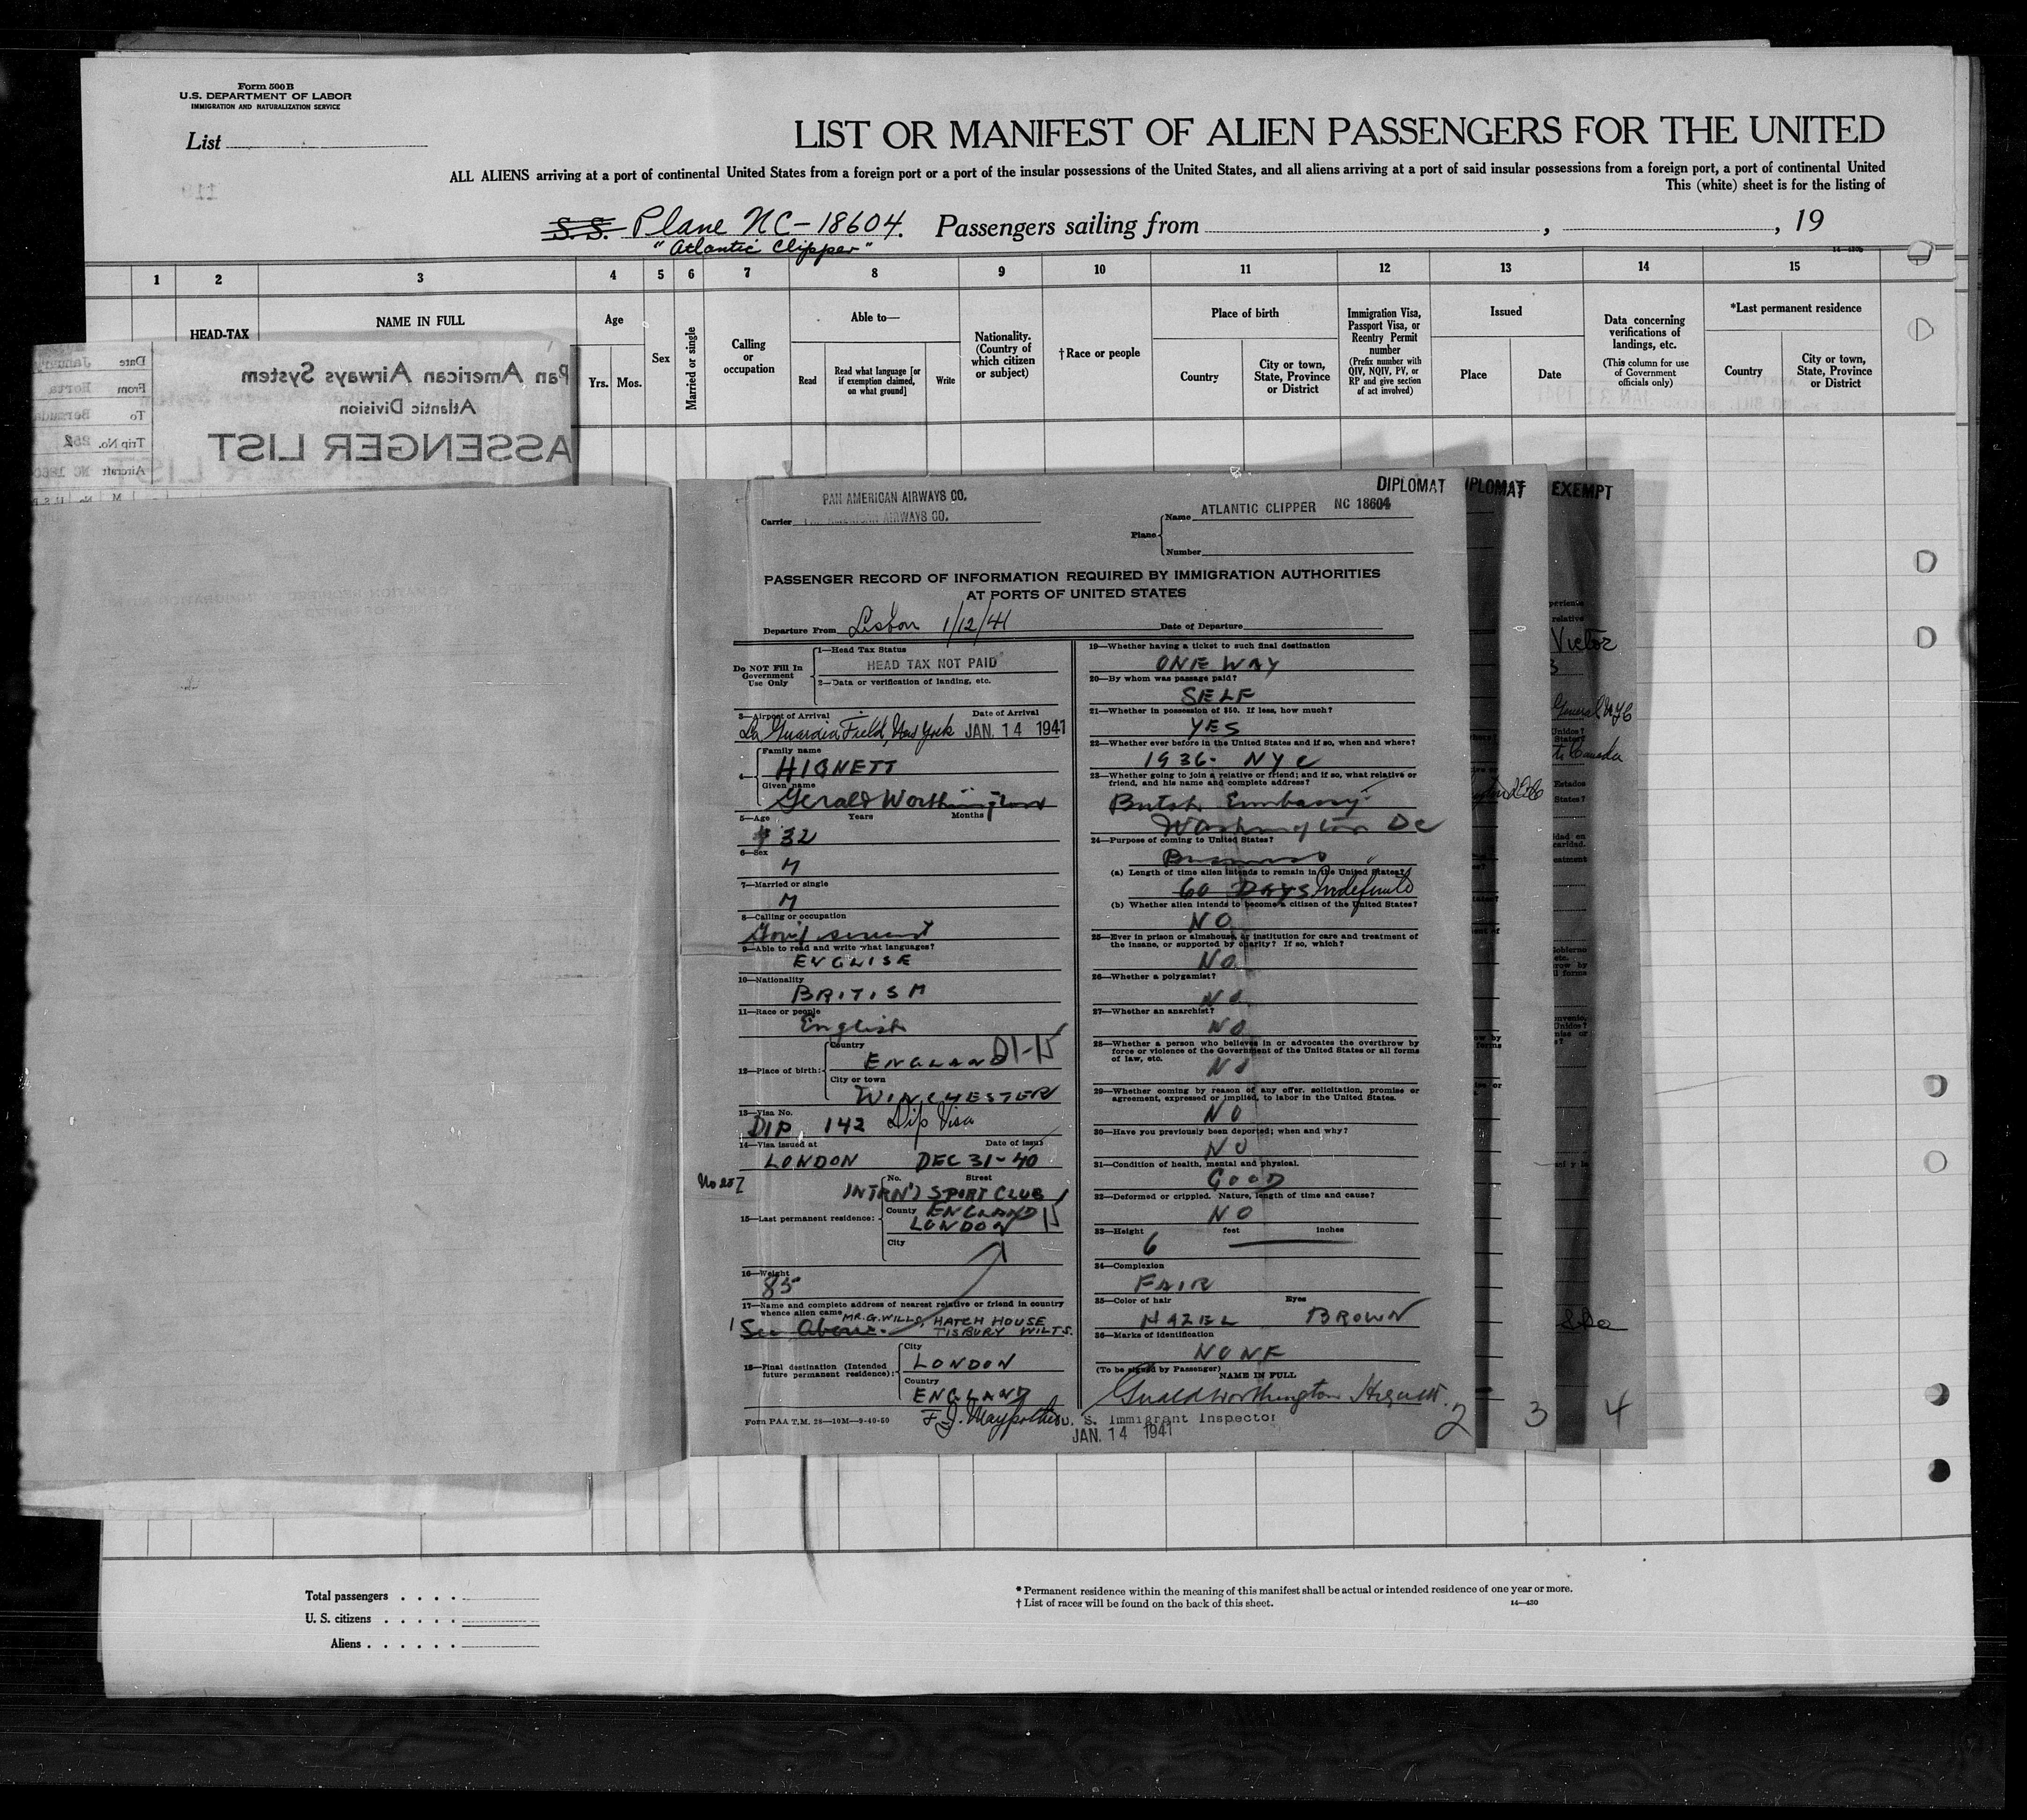 Form 500 B
U.S. DEPARTMENT OF LABOR
IMMIGRATION AND NATURALIZATION SERVICE
List
LIST OR MANIFEST OF ALIEN PASSENGERS FOR THE UNITED
ALL ALIENS arriving at a port of continental United States from a foreign port or a port of the insular possessions of the United States, and all aliens arriving at a port of said insular possessions from a foreign port, a port of continental United
This (white) sheet is for the listing of
S.S. Plane NC-18604. Passengers sailing from , , 19
"Atlantic Clipper"
14-430b
1 2 3 4 5 6 7 8 9 10 11 12 13 14 15
HEAD-TAX
NAME IN FULL
Age
Yrs. Mos.
Sex
Married or single
Calling
or
occupation
Able to—
Read
Read what language [or
if exemption claimed,
on what ground]
Write
Nationality.
(Country of
which citizen
or subject)
†Race or people
Place of birth
Country
City or town,
State, Province
or District
Immigration Visa,
Passport Visa, or
Reentry Permit
number
(Prefix number with
QIV, NQIV, PV, or
RP and give section
of act involved)
Issued
Place
Date
Data concerning
verifications of
landings, etc.
(This column for use
of Government
officials only)
*Last permanent residence
Country
City or town,
State, Province
or District
Pan American Airways System
Atlantic Division
ASSENGER LIST
Date January
From Horta
To Bermuda
Trip No. 252
Aircraft NC 1860
DIPLOMAT
IPLOMAT
EXEMPT
PAN AMERICAN AIRWAYS CO.
Carrier PAN AMERICAN AIRWAYS CO.
Plane
Name ATLANTIC CLIPPER NC 18604
Number
PASSENGER RECORD OF INFORMATION REQUIRED BY IMMIGRATION AUTHORITIES
AT PORTS OF UNITED STATES
Departure From Lisbon 1/12/41 Date of Departure
Do NOT Fill In
Government
Use Only
1—Head Tax Status
HEAD TAX NOT PAID
2—Data or verification of landing, etc.
3—Airport of Arrival Date of Arrival
La Guardia Field, New York JAN. 14 1941
4—
Family name
HIGNETT
Given name
Gerald Worthington
5—Age Years Months
32
6—Sex
M
7—Married or single
M
8—Calling or occupation
Gov't servant
9—Able to read and write what languages?
ENGLISH
10—Nationality
BRITISH
11—Race or people
English
12—Place of birth:
Country
ENGLAND
City or town
WINCHESTER
13—Visa No.
DIP 142 Dip Visa
14—Visa issued at Date of issue
LONDON DEC 31-40
15—Last permanent residence:
No. Street
INTRN'L SPORT CLUB
County ENGLAND
LONDON
City
16—Weight
85
17—Name and complete address of nearest relative or friend in country
whence alien came
See Above. MR. G. WILLS, HATCH HOUSE
TISBURY WILTS.
18—Final destination (Intended
future permanent residence):
City
LONDON
Country
ENGLAND
Form PAA T.M. 28—10M—9-40-50
U. S. Immigrant Inspector
JAN. 14 1941
19—Whether having a ticket to such final destination
ONE WAY
20—By whom was passage paid?
SELF
21—Whether in possession of $50. If less, how much?
YES
22—Whether ever before in the United States and if so, when and where?
1936- NYC
23—Whether going to join a relative or friend; and if so, what relative or
friend, and his name and complete address?
British Embassy
Washington DC
24—Purpose of coming to United States?
Business
(a) Length of time alien intends to remain in the United States?
60 DAYS Indefinite
(b) Whether alien intends to become a citizen of the United States?
NO
25—Ever in prison or almshouse, or institution for care and treatment of
the insane, or supported by charity? If so, which?
NO
26—Whether a polygamist?
NO
27—Whether an anarchist?
NO
28—Whether a person who believes in or advocates the overthrow by
force or violence of the Government of the United States or all forms
of law, etc.
NO
29—Whether coming by reason of any offer, solicitation, promise or
agreement, expressed or implied, to labor in the United States.
NO
30—Have you previously been deported; when and why?
NO
31—Condition of health, mental and physical.
GOOD
32—Deformed or crippled. Nature, length of time and cause?
NO
33—Height feet inches
6
34—Complexion
FAIR
35—Color of hair Eyes
HAZEL BROWN
36—Marks of identification
NONE
(To be signed by Passenger)
NAME IN FULL
Gerald Worthington Hignett.
2
3
4
Victor
to Canada
Total passengers
U. S. citizens
Aliens
* Permanent residence within the meaning of this manifest shall be actual or intended residence of one year or more.
† List of races will be found on the back of this sheet.
14—430